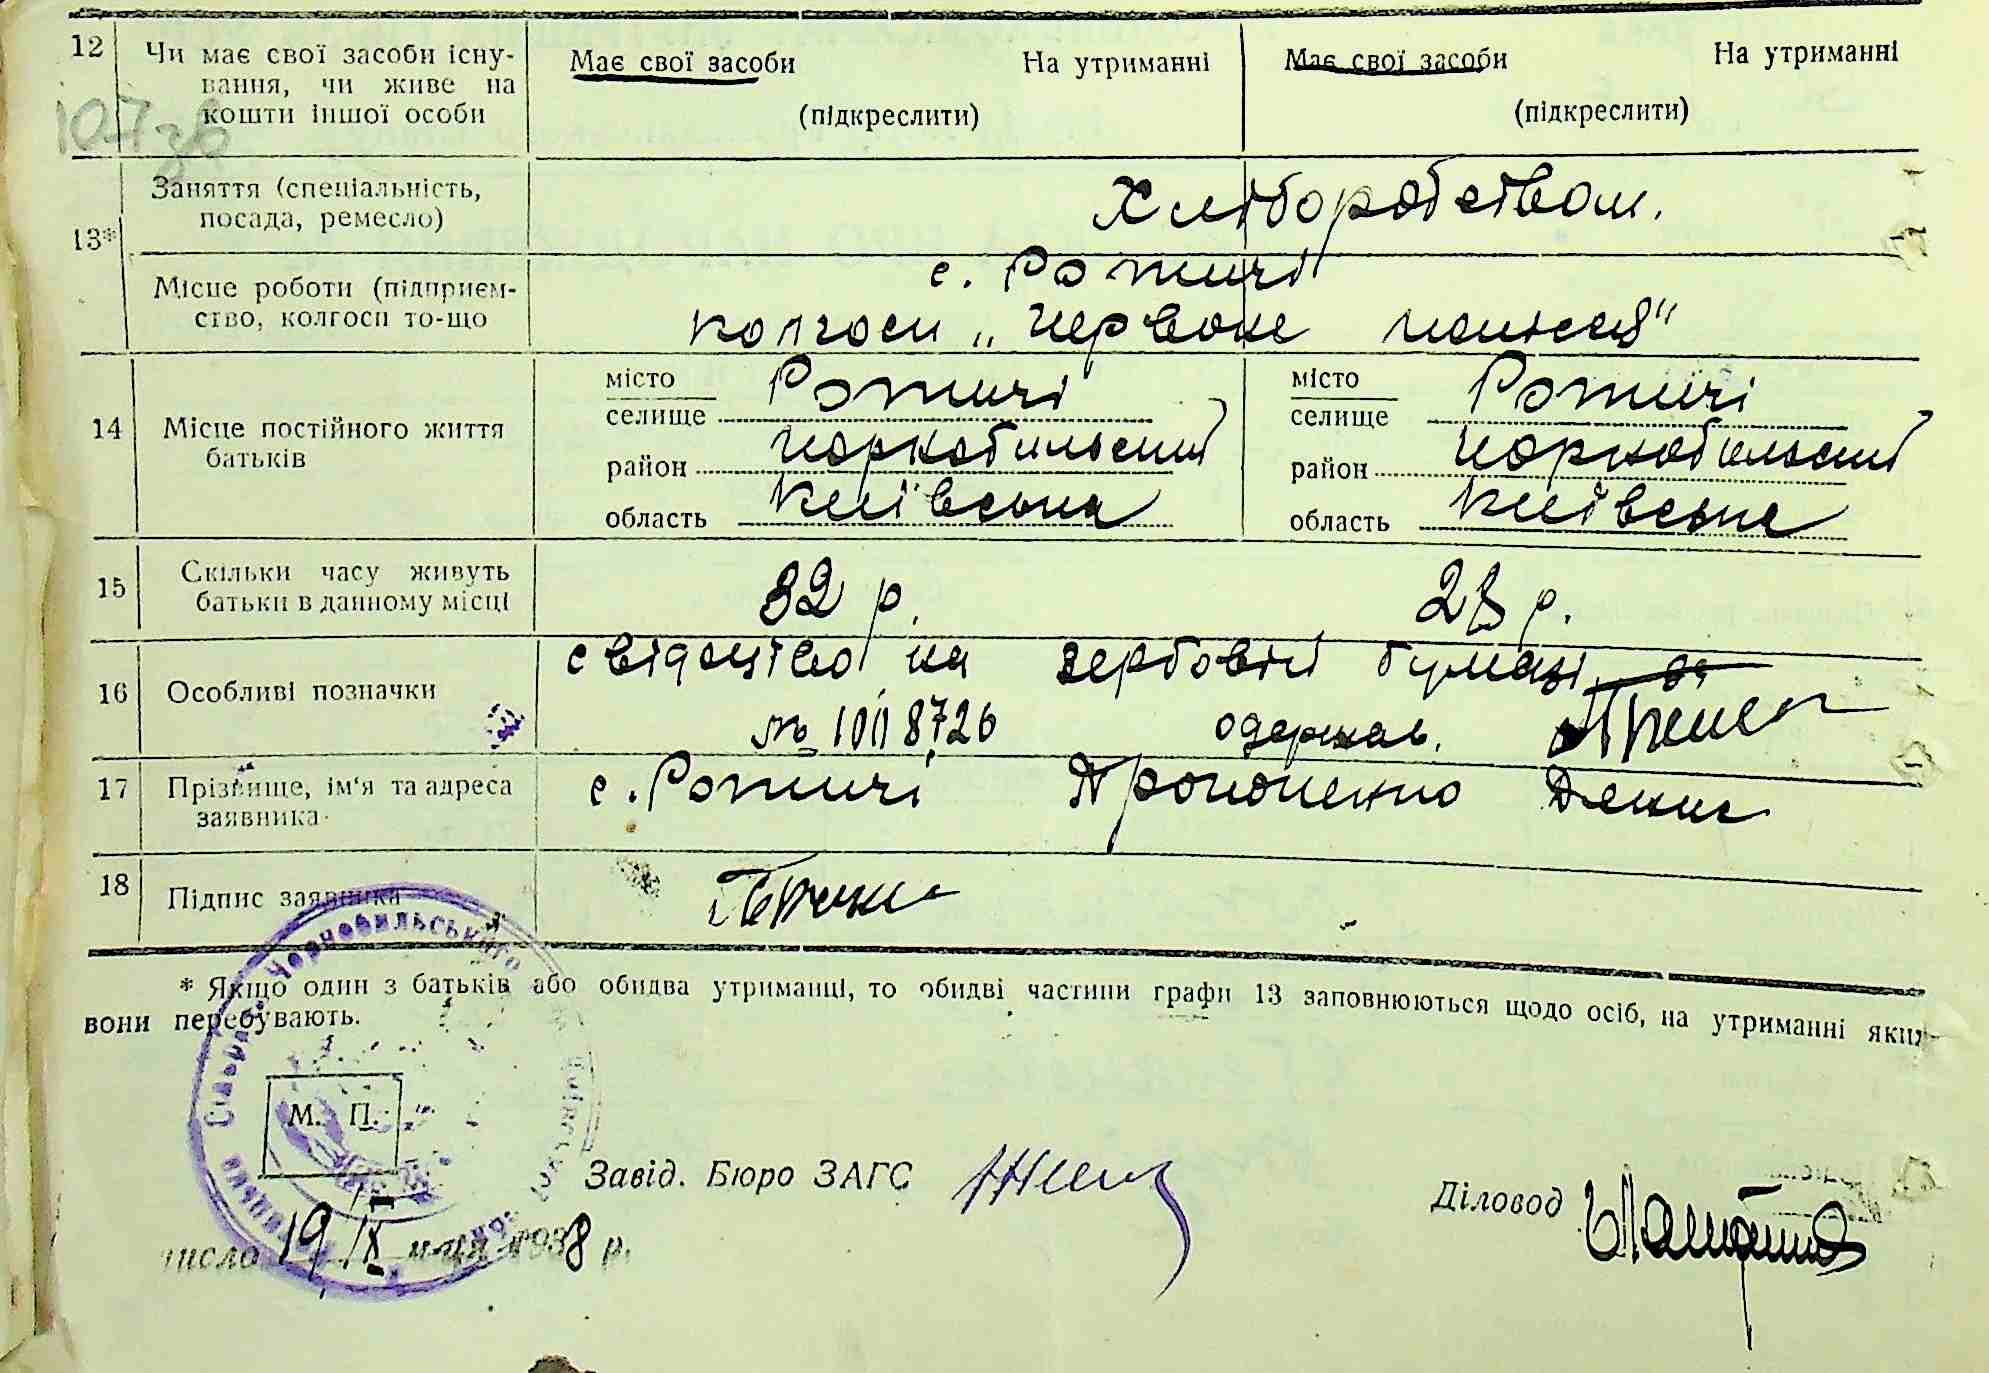 12 Чи має свої засоби існу-
вання, чи живе на
кошти іншої особи
Має свої засоби На утриманні
(підкреслити)
Має свої засоби На утриманні
(підкреслити)
107зв
13* Заняття (спеціальність,
посада, ремесло)
Хліборобством.
Місце роботи (підприєм-
ство, колгосп то-що
с. Ротичі
колгосп „Червоне полісся"
14 Місце постійного життя
батьків
місто
селище Ротичі
район Чорнобильский
область Київська
місто
селище Ротичі
район Чорнобильский
область Київська
15 Скільки часу живуть
батьки в данному місці
32 р. 28 р.
16 Особливі позначки
свідоцтво на гербовій бумазі
№ 1008726 одержав.
17 Прізвище, ім'я та адреса
заявника
с. Ротичі Прокопенко Денис
18 Підпис заявника
* Якщо один з батьків або обидва утриманці, то обидві частини графи 13 заповнюються щодо осіб, на утриманні яких
вони перебувають.
Сільрада Чорнобильського
М. П.
Завід. Бюро ЗАГС
Діловод
число 19/IX м-ця 1938 р.